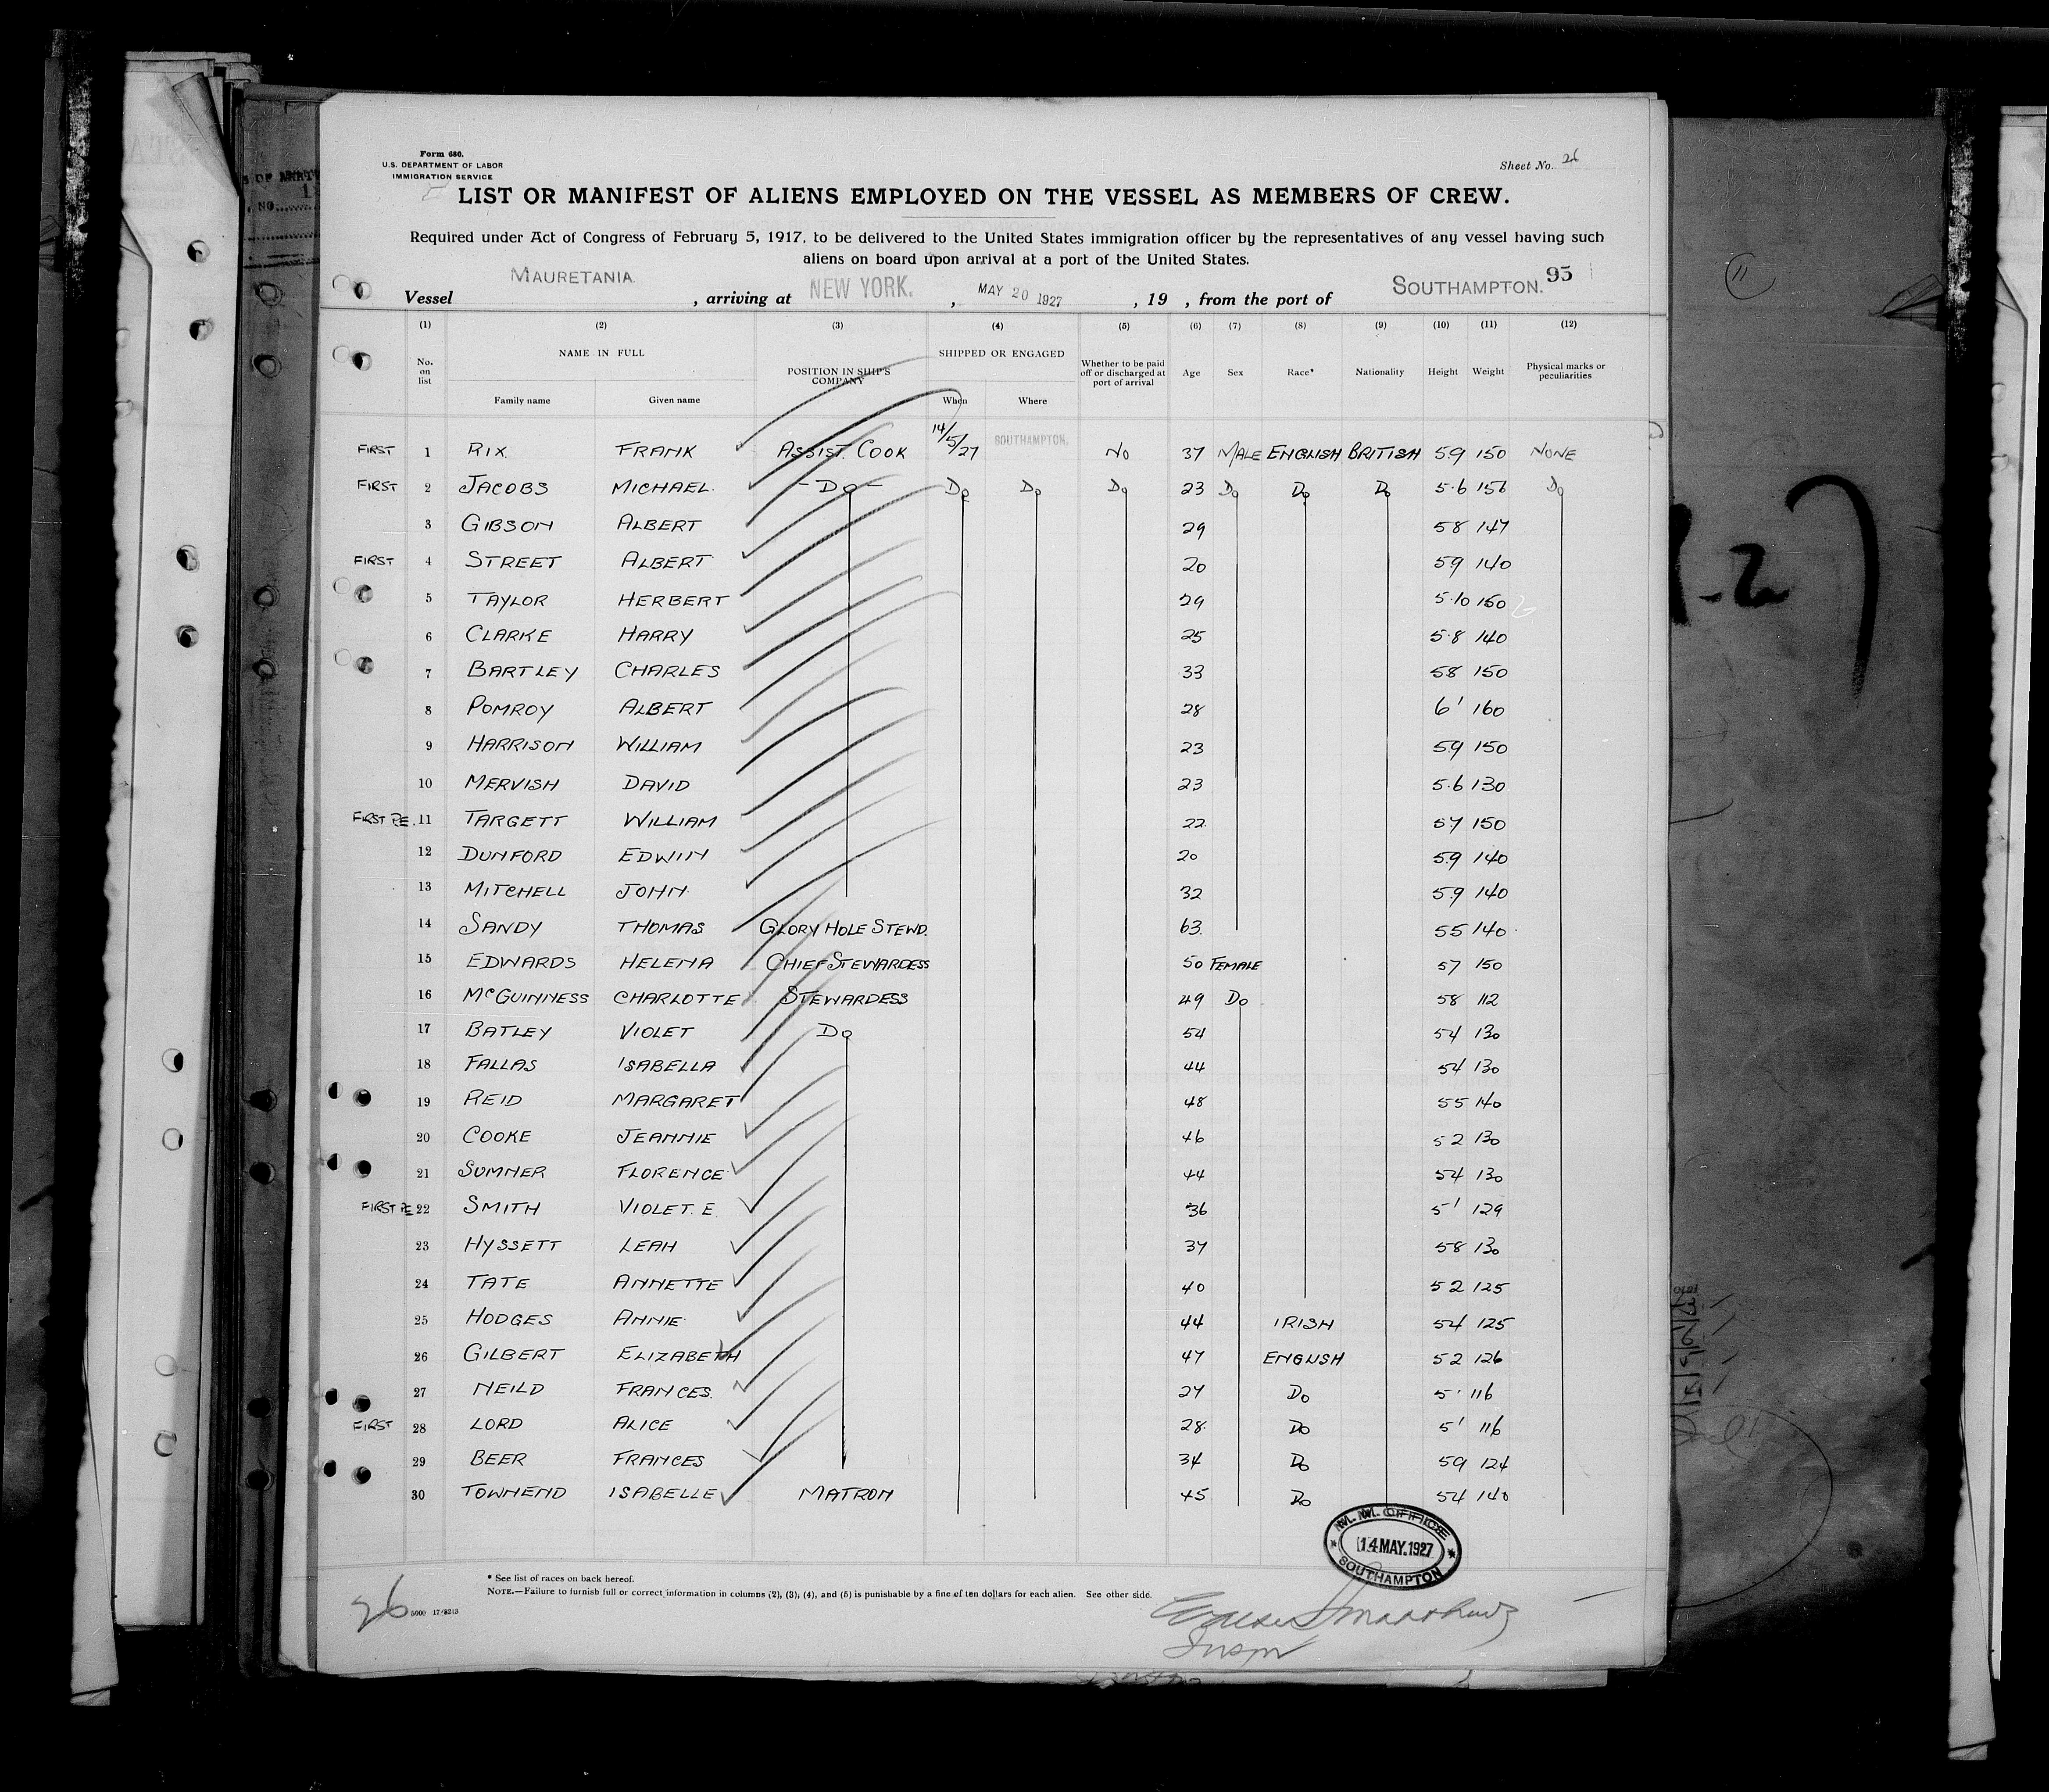 Form 680.
U.S. DEPARTMENT OF LABOR
IMMIGRATION SERVICE
Sheet No. 26
LIST OR MANIFEST OF ALIENS EMPLOYED ON THE VESSEL AS MEMBERS OF CREW.
Required under Act of Congress of February 5, 1917, to be delivered to the United States immigration officer by the representatives of any vessel having such
aliens on board upon arrival at a port of the United States.
Vessel MAURETANIA , arriving at NEW YORK. , MAY 20 1927 , 19 , from the port of SOUTHAMPTON. 95
(1) (2) (3) (4) (5) (6) (7) (8) (9) (10) (11) (12)
No. on list NAME IN FULL POSITION IN SHIP'S COMPANY SHIPPED OR ENGAGED Whether to be paid off or discharged at port of arrival Age Sex Race* Nationality Height Weight Physical marks or peculiarities
Family name Given name When Where
FIRST 1 RIX FRANK ASSIST. COOK 14/5/27 SOUTHAMPTON. NO 37 MALE ENGLISH BRITISH 5.9 150 NONE
FIRST 2 JACOBS MICHAEL - DO - DO DO DO 23 DO DO DO 5.6 156 DO
3 GIBSON ALBERT 29 58 147
FIRST 4 STREET ALBERT 20 59 140
5 TAYLOR HERBERT 29 5.10 150
6 CLARKE HARRY 25 5.8 140
7 BARTLEY CHARLES 33 58 150
8 POMROY ALBERT 28 6' 160
9 HARRISON WILLIAM 23 59 150
10 MERVISH DAVID 23 5.6 130
FIRST RE. 11 TARGETT WILLIAM 22 57 150
12 DUNFORD EDWIN 20 59 140
13 MITCHELL JOHN 32 59 140
14 SANDY THOMAS GLORY HOLE STEWD. 63 55 140
15 EDWARDS HELENA CHIEF STEWARDESS 50 FEMALE 57 150
16 McGUINNESS CHARLOTTE STEWARDESS 49 DO 58 112
17 BATLEY VIOLET DO 54 54 130
18 FALLAS ISABELLA 44 54 130
19 REID MARGARET 48 55 140
20 COOKE JEANNIE 46 52 130
21 SUMNER FLORENCE 44 54 130
FIRST RE 22 SMITH VIOLET. E. 36 5' 129
23 HYSSETT LEAH 37 58 130
24 TATE ANNETTE 40 52 125
25 HODGES ANNIE 44 IRISH 54 125
26 GILBERT ELIZABETH 47 ENGLISH 52 126
27 NEILD FRANCES. 27 DO 5' 116
FIRST 28 LORD ALICE 28 DO 5' 116
29 BEER FRANCES 34 DO 59 124
30 TOWNEND ISABELLE MATRON 45 DO 54 140
M.M. OFFICE
14 MAY. 1927
SOUTHAMPTON
* See list of races on back hereof.
NOTE.—Failure to furnish full or correct information in columns (2), (3), (4), and (5) is punishable by a fine of ten dollars for each alien. See other side.
26
Inspr